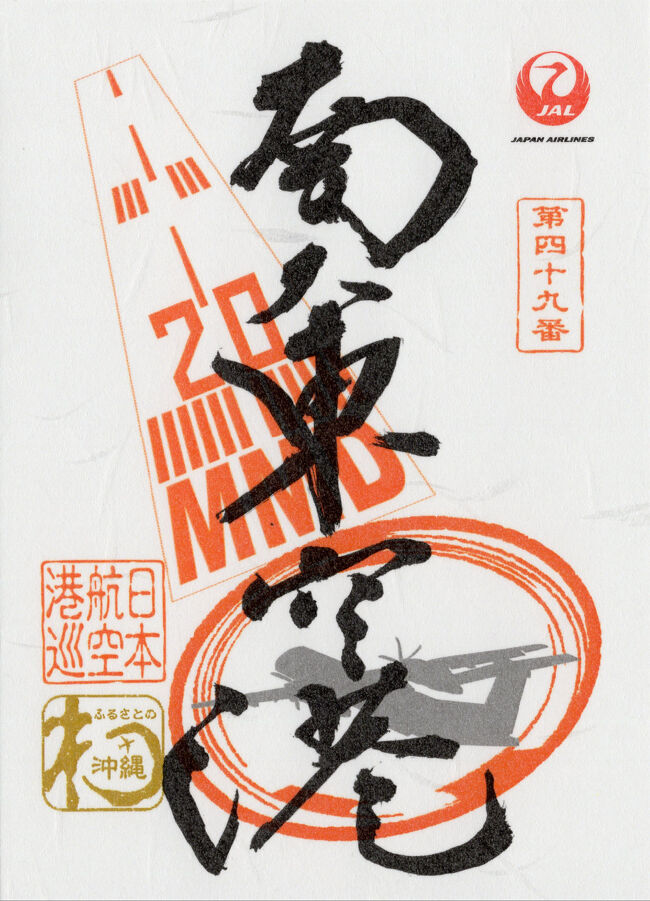 JAL
JAPAN AIRLINES
第四十九番
南大東空港
20
MMD
日本
航空
港巡
ふるさとの
沖縄